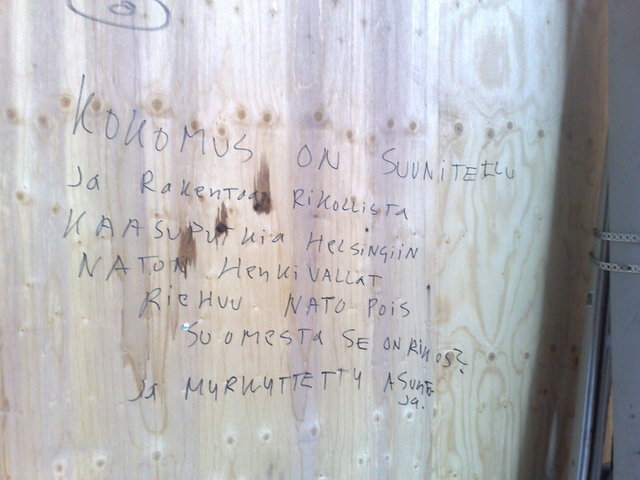 KOKOMUS ON SUUNITEILU
Ja RaKentaa RiKOLLiSTA
KAASUPUTKia HeLSiNGiiN
NATON HenKi VALLAT
RieHUU NATO POiS
SUOMESTa SE ON RiKOS?
Ja MYRKYTTETTY ASUNTO
Ja.